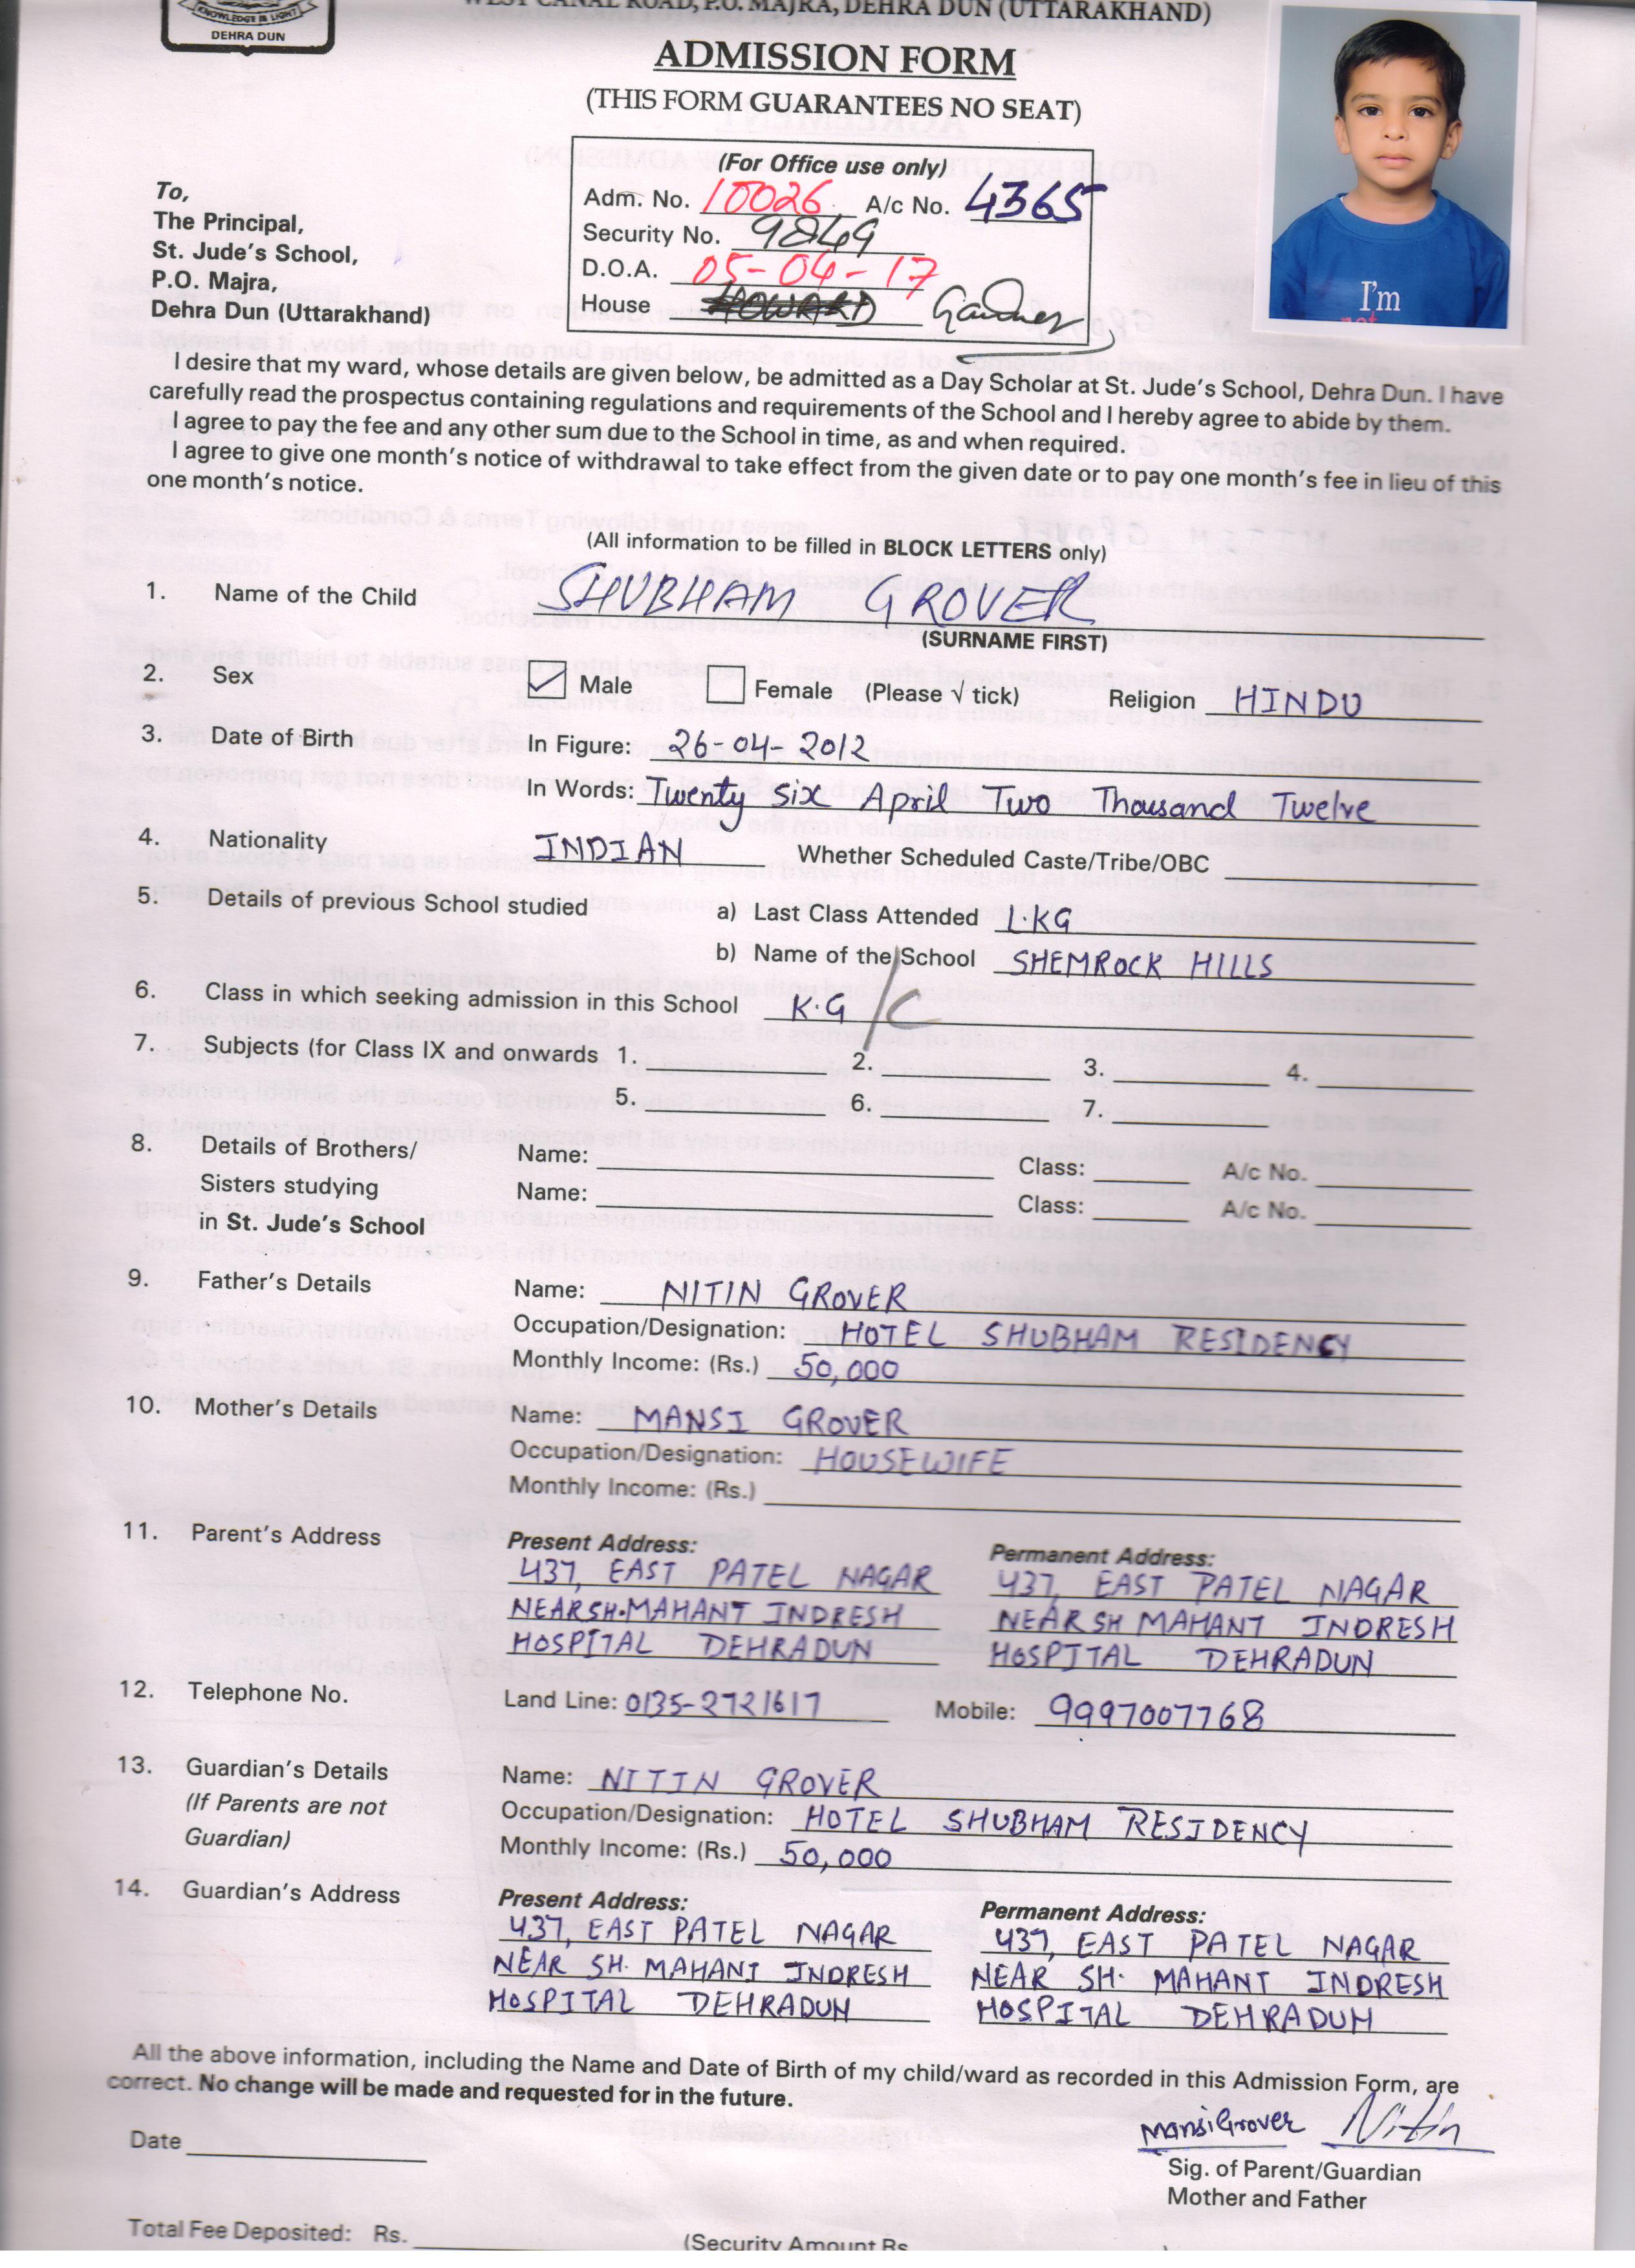 KNOWLEDGE IS LIGHT
DEHRA DUN
WEST CANAL ROAD, P.O. MAJRA, DEHRA DUN (UTTARAKHAND)
ADMISSION FORM
(THIS FORM GUARANTEES NO SEAT)
(For Office use only)
Adm. No. 10026 A/c No. 4365
Security No. 9849
D.O.A. 05-04-17
House HOWARD Gardner
I'm
not
To,
The Principal,
St. Jude's School,
P.O. Majra,
Dehra Dun (Uttarakhand)
I desire that my ward, whose details are given below, be admitted as a Day Scholar at St. Jude's School, Dehra Dun. I have
carefully read the prospectus containing regulations and requirements of the School and I hereby agree to abide by them.
I agree to pay the fee and any other sum due to the School in time, as and when required.
I agree to give one month's notice of withdrawal to take effect from the given date or to pay one month's fee in lieu of this
one month's notice.
(All information to be filled in BLOCK LETTERS only)
1. Name of the Child SHUBHAM GROVER
(SURNAME FIRST)
2. Sex Male Female (Please √ tick) Religion HINDU
3. Date of Birth In Figure: 26-04-2012
In Words: Twenty six April Two Thousand Twelve
4. Nationality INDIAN Whether Scheduled Caste/Tribe/OBC
5. Details of previous School studied a) Last Class Attended L.KG
b) Name of the School SHEMROCK HILLS
6. Class in which seeking admission in this School K.G /C
7. Subjects (for Class IX and onwards 1. 2. 3. 4.
5. 6. 7.
8. Details of Brothers/ Name: Class: A/c No.
Sisters studying Name: Class: A/c No.
in St. Jude's School
9. Father's Details Name: NITIN GROVER
Occupation/Designation: HOTEL SHUBHAM RESIDENCY
Monthly Income: (Rs.) 50,000
10. Mother's Details Name: MANSI GROVER
Occupation/Designation: HOUSEWIFE
Monthly Income: (Rs.)
11. Parent's Address Present Address: Permanent Address:
437, EAST PATEL NAGAR 437, EAST PATEL NAGAR
NEAR SH. MAHANT INDRESH NEAR SH MAHANT INDRESH
HOSPITAL DEHRADUN HOSPITAL DEHRADUN
12. Telephone No. Land Line: 0135-2721617 Mobile: 9997007768
13. Guardian's Details Name: NITIN GROVER
(If Parents are not Occupation/Designation: HOTEL SHUBHAM RESIDENCY
Guardian) Monthly Income: (Rs.) 50,000
14. Guardian's Address Present Address: Permanent Address:
437, EAST PATEL NAGAR 437, EAST PATEL NAGAR
NEAR SH. MAHANT INDRESH NEAR SH. MAHANT INDRESH
HOSPITAL DEHRADUN HOSPITAL DEHRADUN
All the above information, including the Name and Date of Birth of my child/ward as recorded in this Admission Form, are
correct. No change will be made and requested for in the future.
Mansi Grover Nitin
Date
Sig. of Parent/Guardian
Mother and Father
Total Fee Deposited: Rs. (Security Amount Rs.